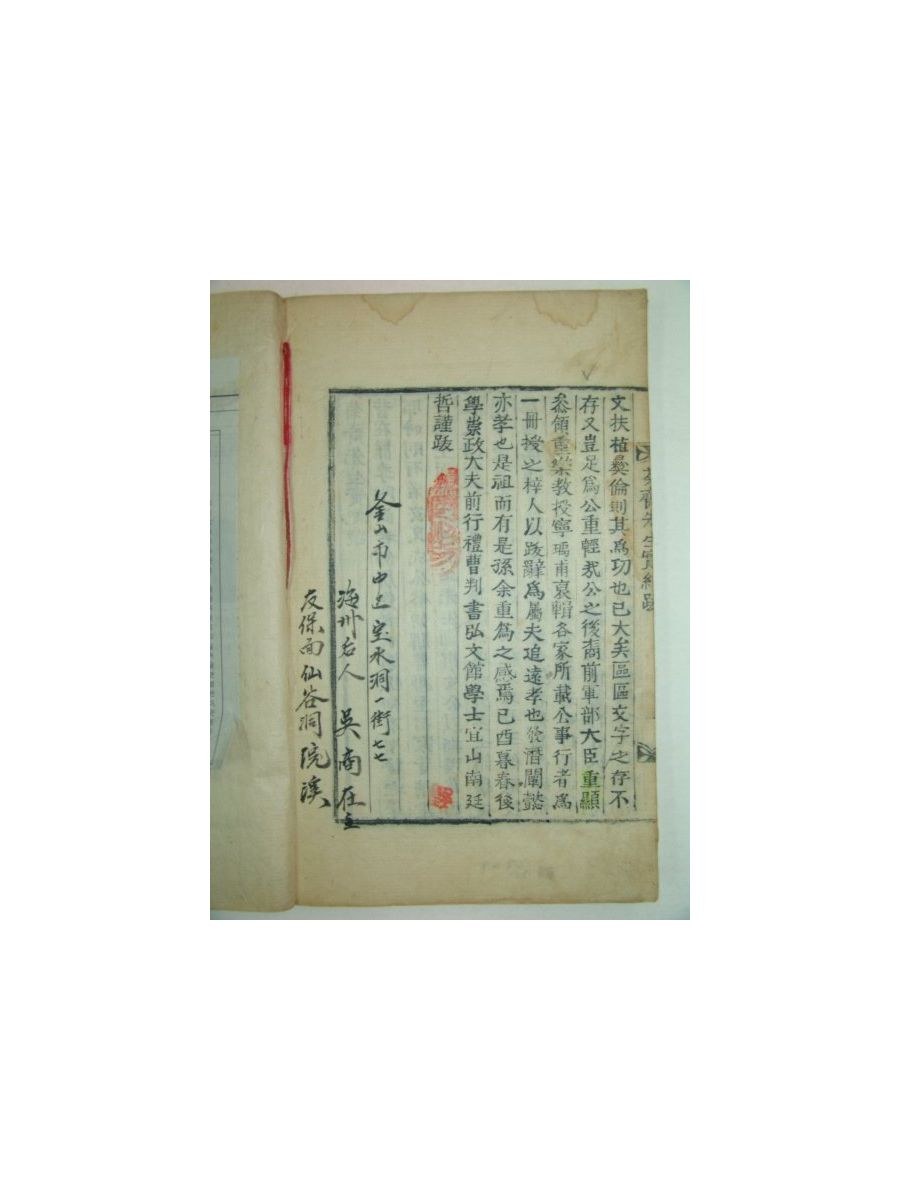 文扶植彜倫則其爲功也已大矣區區文字之存不
存又豈足爲公重輕哉公之後裔前軍部大臣重顯
叅領重樂教授寧瑀甫裒輯各家所載公事行者爲
一冊授之梓人以跋辭爲屬夫追遠孝也發潛闡懿
亦孝也是祖而有是孫余重爲之感焉已酉暮春後
學崇政大夫前行禮曹判書弘文館學士宜山南廷
哲謹跋
釜山市中区宝水洞一街七七
海州后人 吳商在
友保面仙谷洞 院溪
先生實紀跋